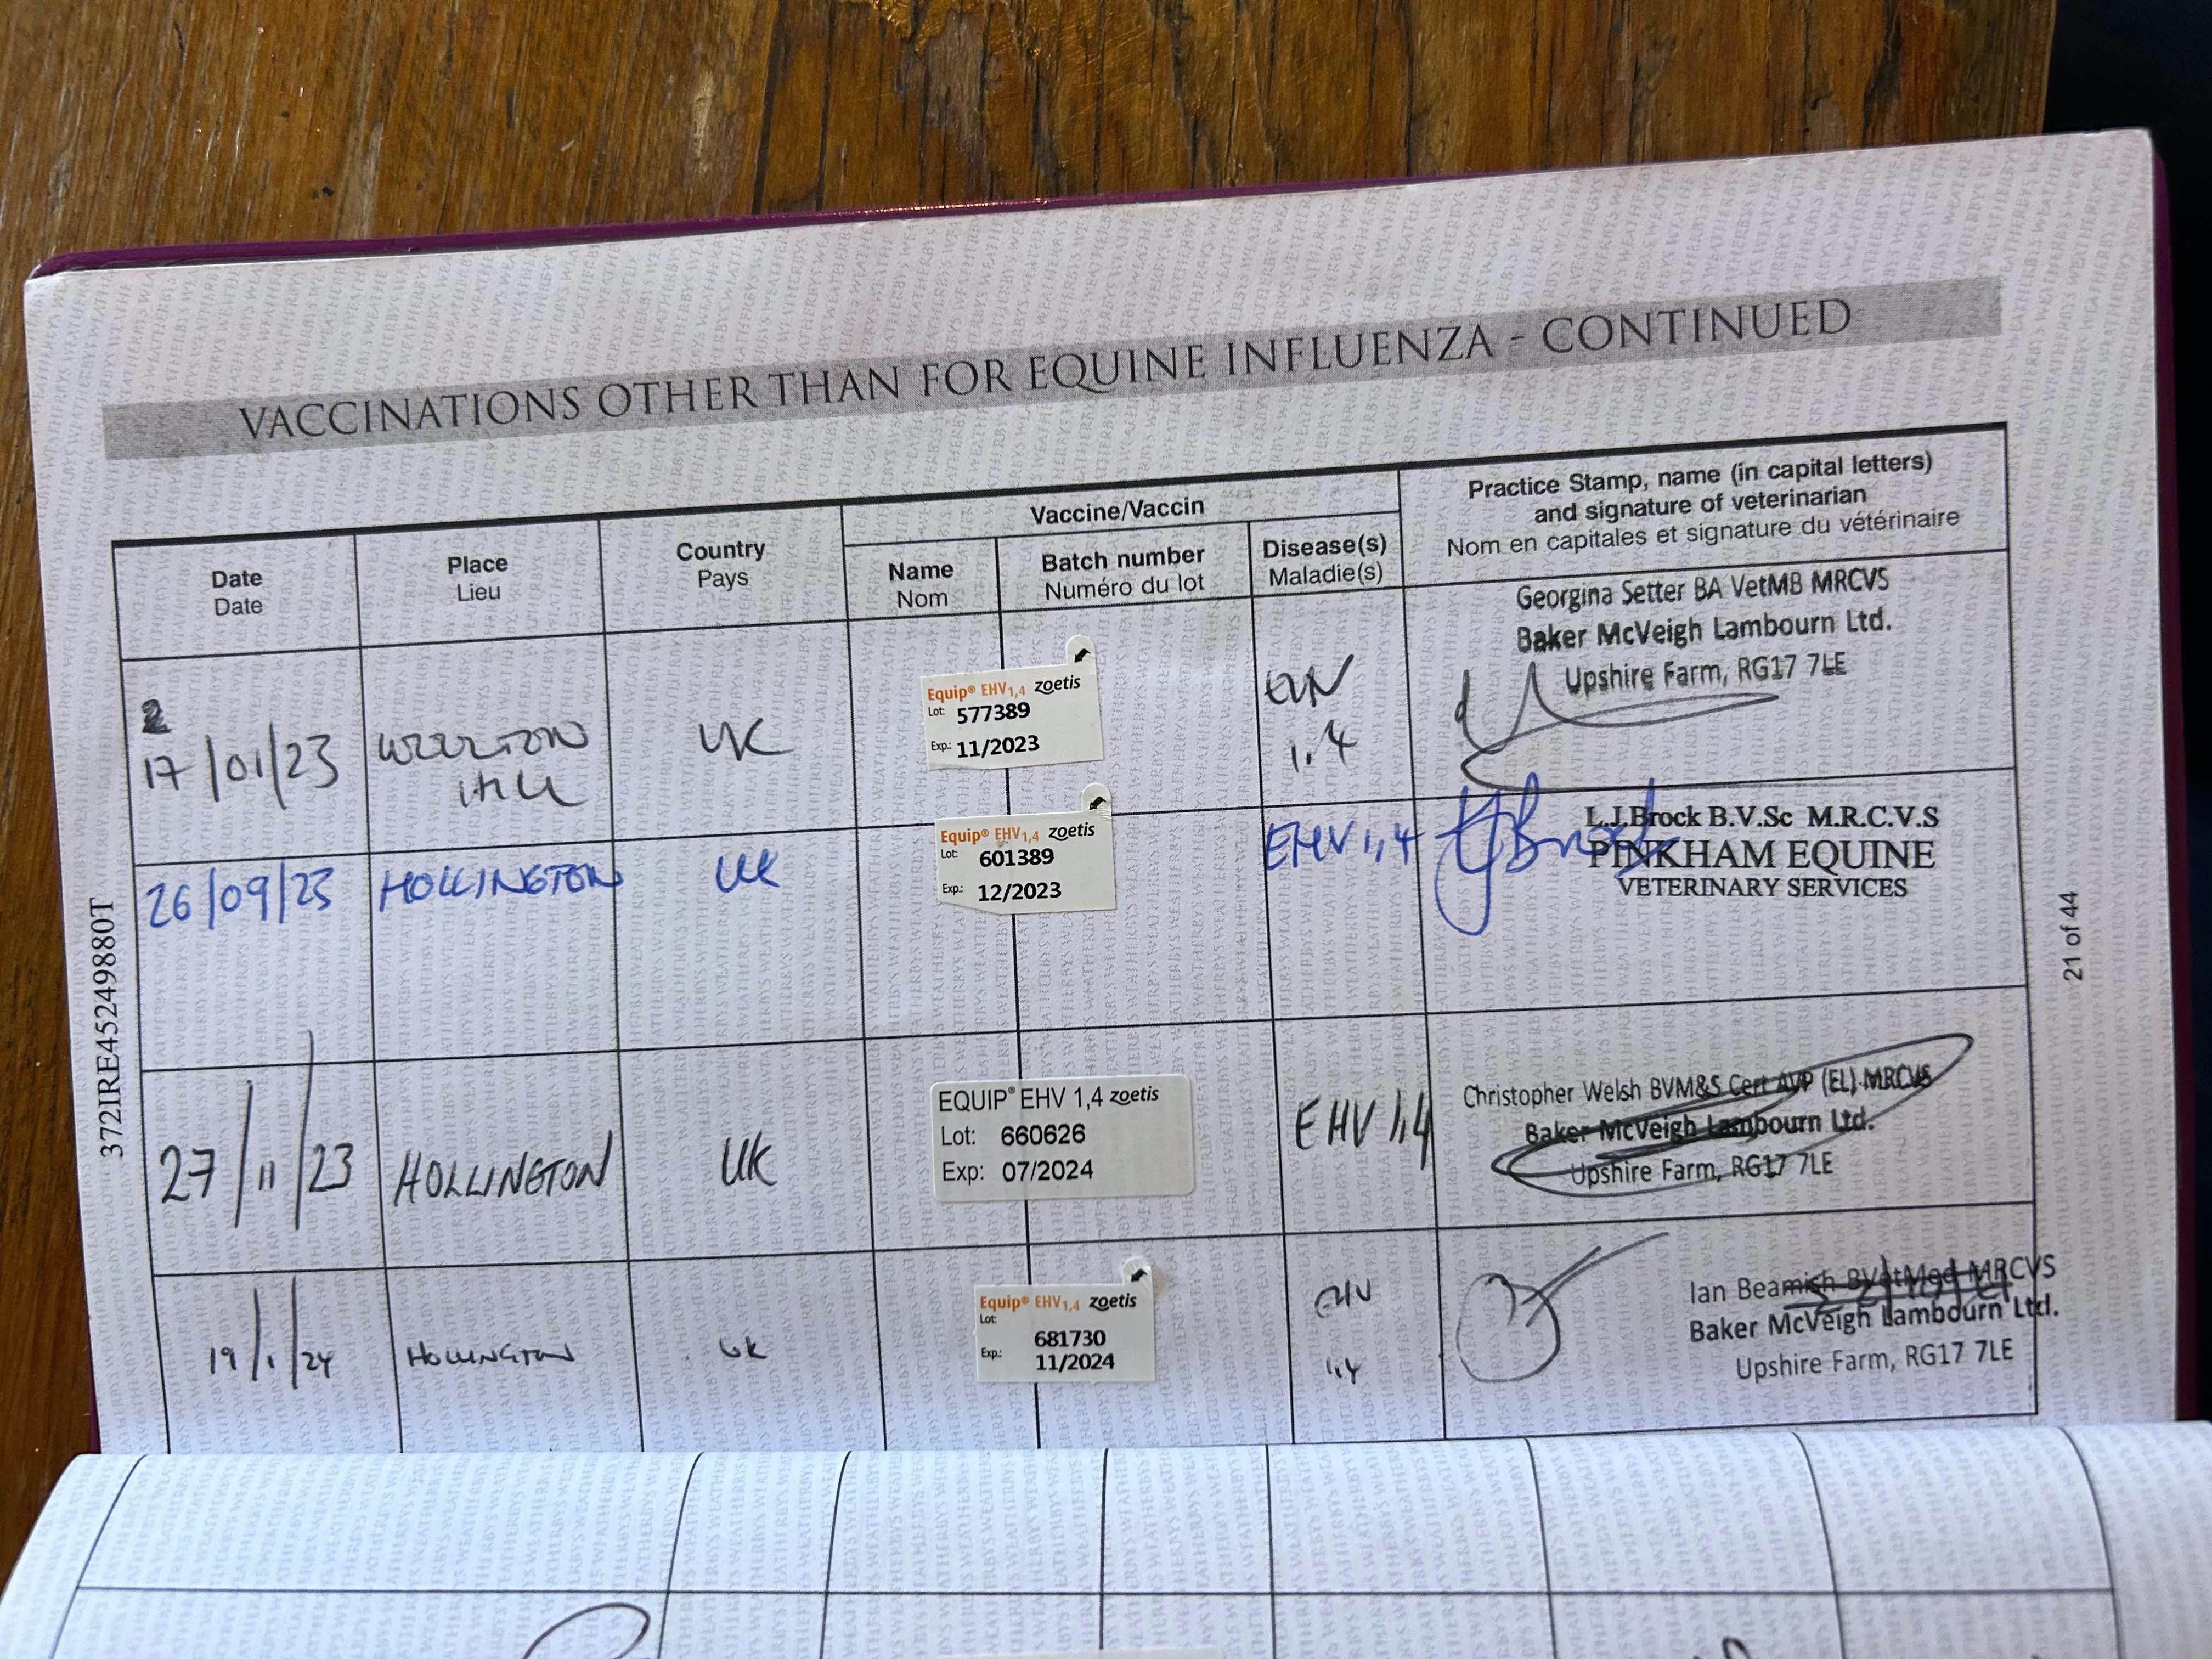 VACCINATIONS OTHER THAN FOR EQUINE INFLUENZA - CONTINUED
Date
Date
Place
Lieu
Country
Pays
Vaccine/Vaccin
Name
Nom
Batch number
Numéro du lot
Disease(s)
Maladie(s)
Practice Stamp, name (in capital letters)
and signature of veterinarian
Nom en capitales et signature du vétérinaire
17/01/23
UK
Equip® EHV1,4 zoetis
Lot: 577389
Exp.: 11/2023
EHV
1,4
Georgina Setter BA VetMB MRCVS
Baker McVeigh Lambourn Ltd.
Upshire Farm, RG17 7LE
26/09/23
HOLLINGTON
UK
Equip® EHV1,4 zoetis
Lot: 601389
Exp.: 12/2023
EHV 1,4
L.J.Brock B.V.Sc M.R.C.V.S
PINKHAM EQUINE
VETERINARY SERVICES
27/11/23
HOLLINGTON
UK
EQUIP® EHV 1,4 zoetis
Lot: 660626
Exp: 07/2024
EHV 1,4
Christopher Welsh BVM&S Cert AVP (EL) MRCVS
Baker McVeigh Lambourn Ltd.
Upshire Farm, RG17 7LE
19/1/24
HOLLINGTON
UK
Equip® EHV1,4 zoetis
Lot:
681730
Exp.:
11/2024
EHV
1,4
Ian Beamish BVetMed MRCVS
Baker McVeigh Lambourn Ltd.
Upshire Farm, RG17 7LE
372IRE45249880T
21 of 44